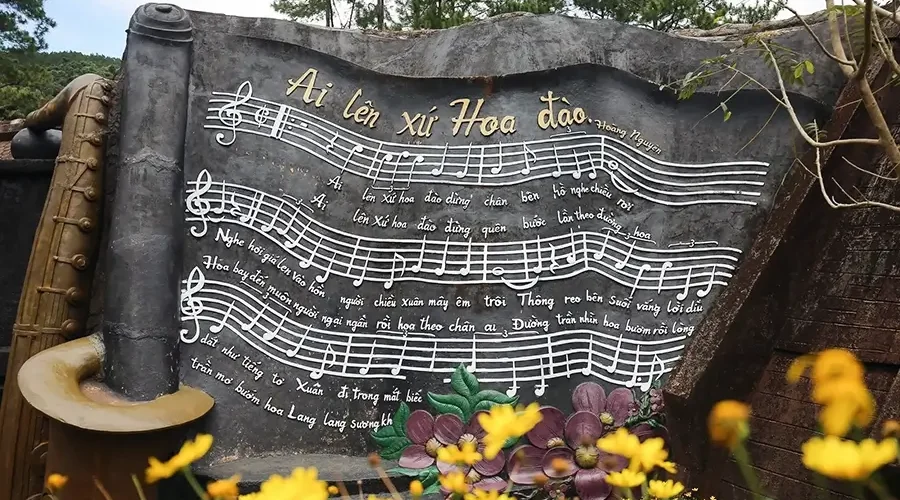 Ai lên xứ Hoa đào.
Hoàng Nguyên
Ai lên xứ hoa đào dừng chân bên hồ nghe chiều rơi
Ai lên xứ hoa đào đừng quên bước lần theo đường hoa
Nghe hơi giá len vào hồn người chiều Xuân mây êm trôi Thông reo bên Suối vắng lời dìu
Hoa bay đến muôn người ngại ngần rồi hoa theo chân ai Đường trần nhìn hoa bướm rồi lòng
dặt như tiếng tơ Xuân đi trong mắt biếc
trần mơ bướm hoa Lang lang sương kh